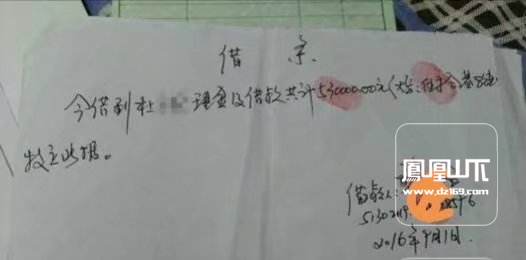 借条
今借到杜 现金及借款共计530000.00元(大写:伍
特立此据。
借款人:
5130
2016年 月1日.
鳳凰山下
www.dz169.com